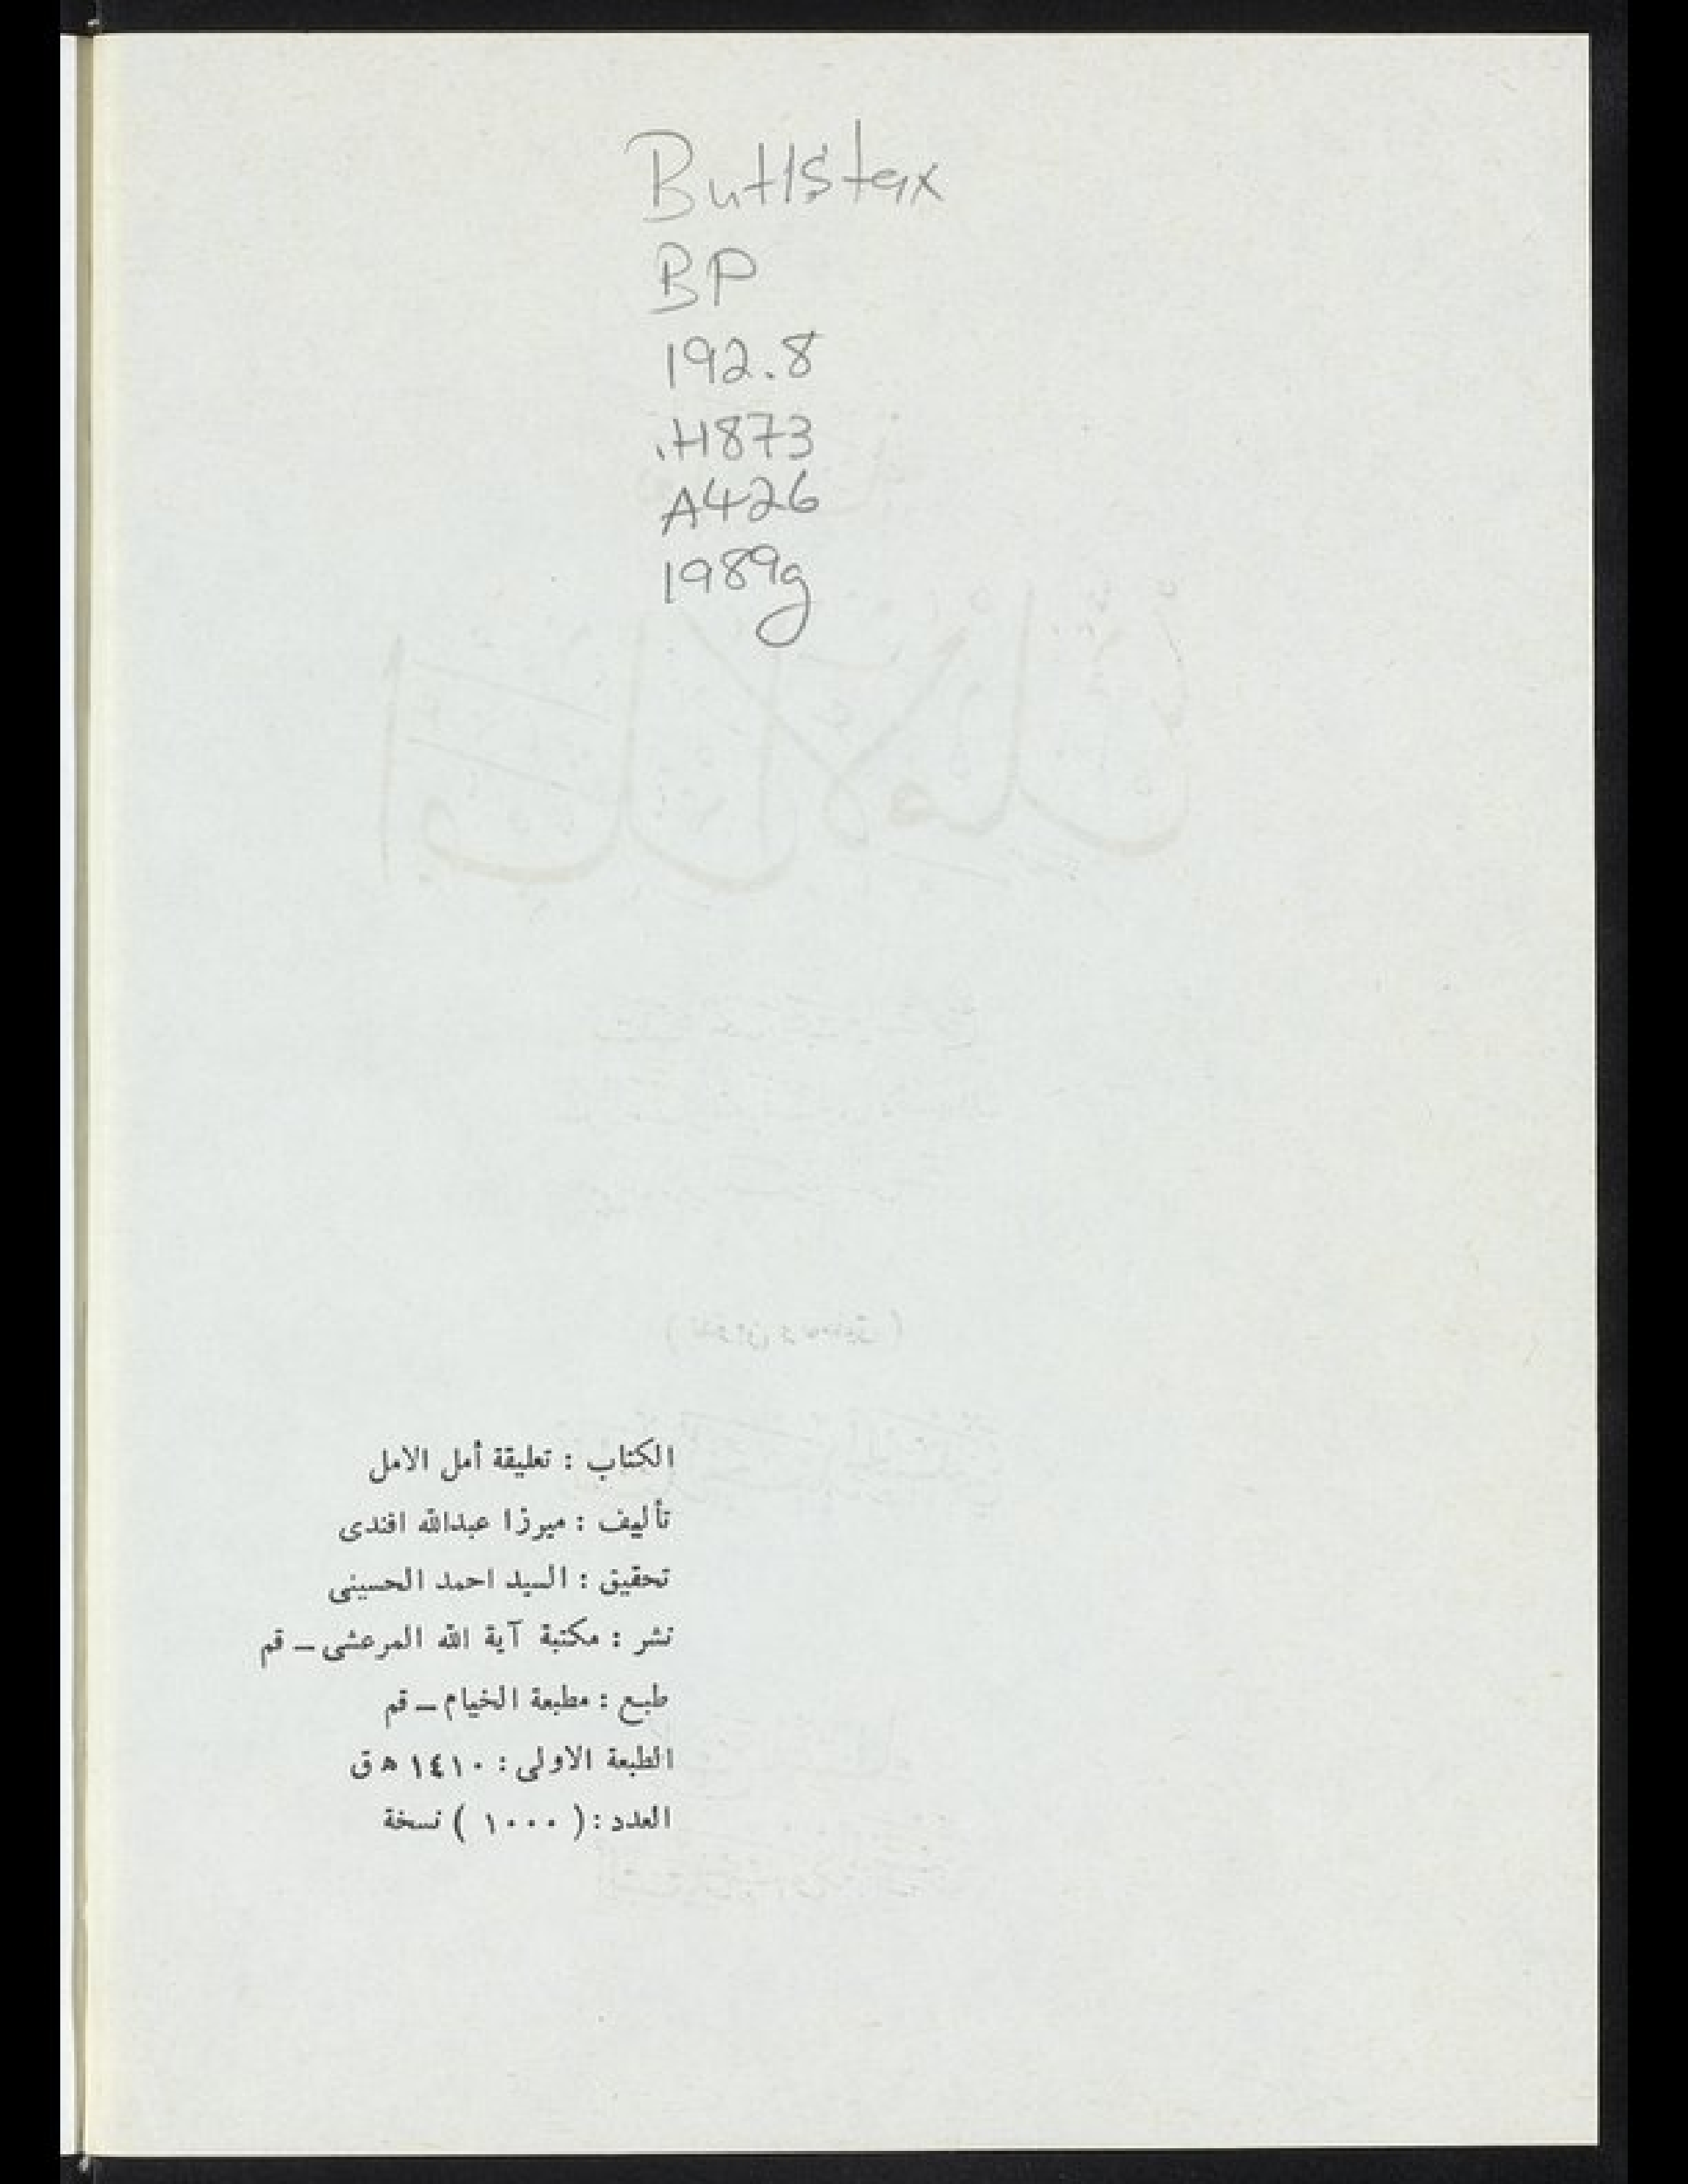 Butlstax
BP
192.8
.H873
A426
1989g
الكتاب : تعليقة أمل الامل
تأليف : ميرزا عبدالله افندى
تحقيق : السيد احمد الحسينى
نشر : مكتبة آية الله المرعشى ــ قم
طبع : مطبعة الخيام ــ قم
الطبعة الاولى : ١٤١٠ ه ق
العدد : ( ١٠٠٠ ) نسخة